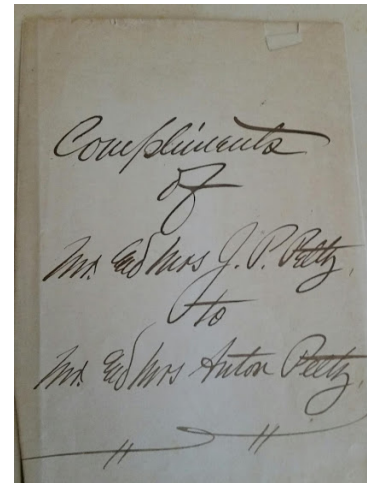 Compliments
of
Mr. End Mrs J. P. Peltz,
to
Mr. End Mrs Anton Peltz,